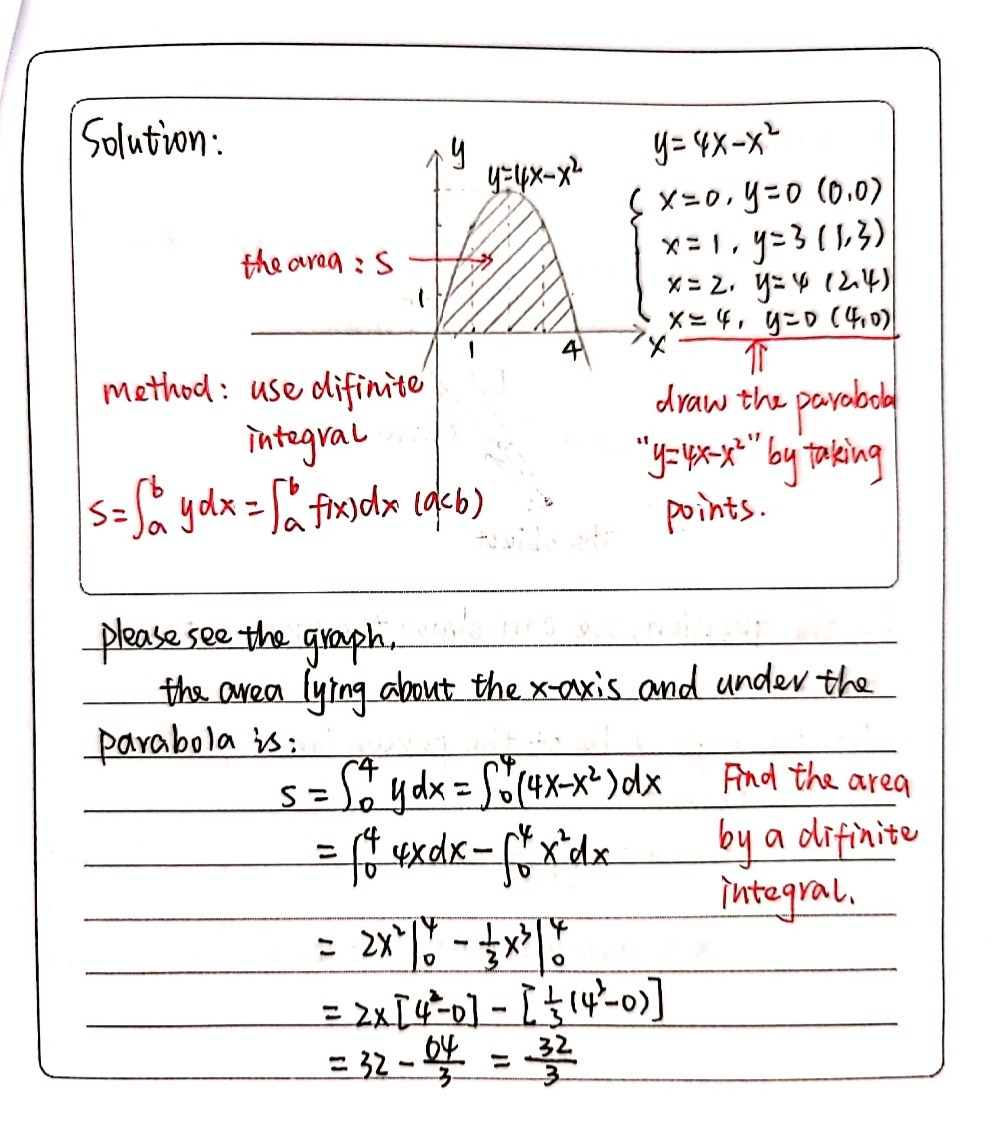 Solution:
y
y=4x-x²
the area : S
1
1
4
x
y=4x-x²
x=0, y=0 (0,0)
x=1, y=3 (1,3)
x=2, y=4 (2,4)
x=4, y=0 (4,0)
draw the parabola
"y=4x-x²" by taking
points.
method: use difinite
integral
S=∫ₐᵇ ydx=∫ₐᵇ f(x)dx (a<b)
please see the graph,
the area lying about the x-axis and under the
parabola is:
S=∫₀⁴ ydx=∫₀⁴(4x-x²)dx
=∫₀⁴ 4xdx-∫₀⁴ x²dx
Find the area
by a difinite
integral.
= 2x²|₀⁴ - 1/3 x³|₀⁴
= 2×[4²-0] - [1/3(4³-0)]
= 32 - 64/3 = 32/3